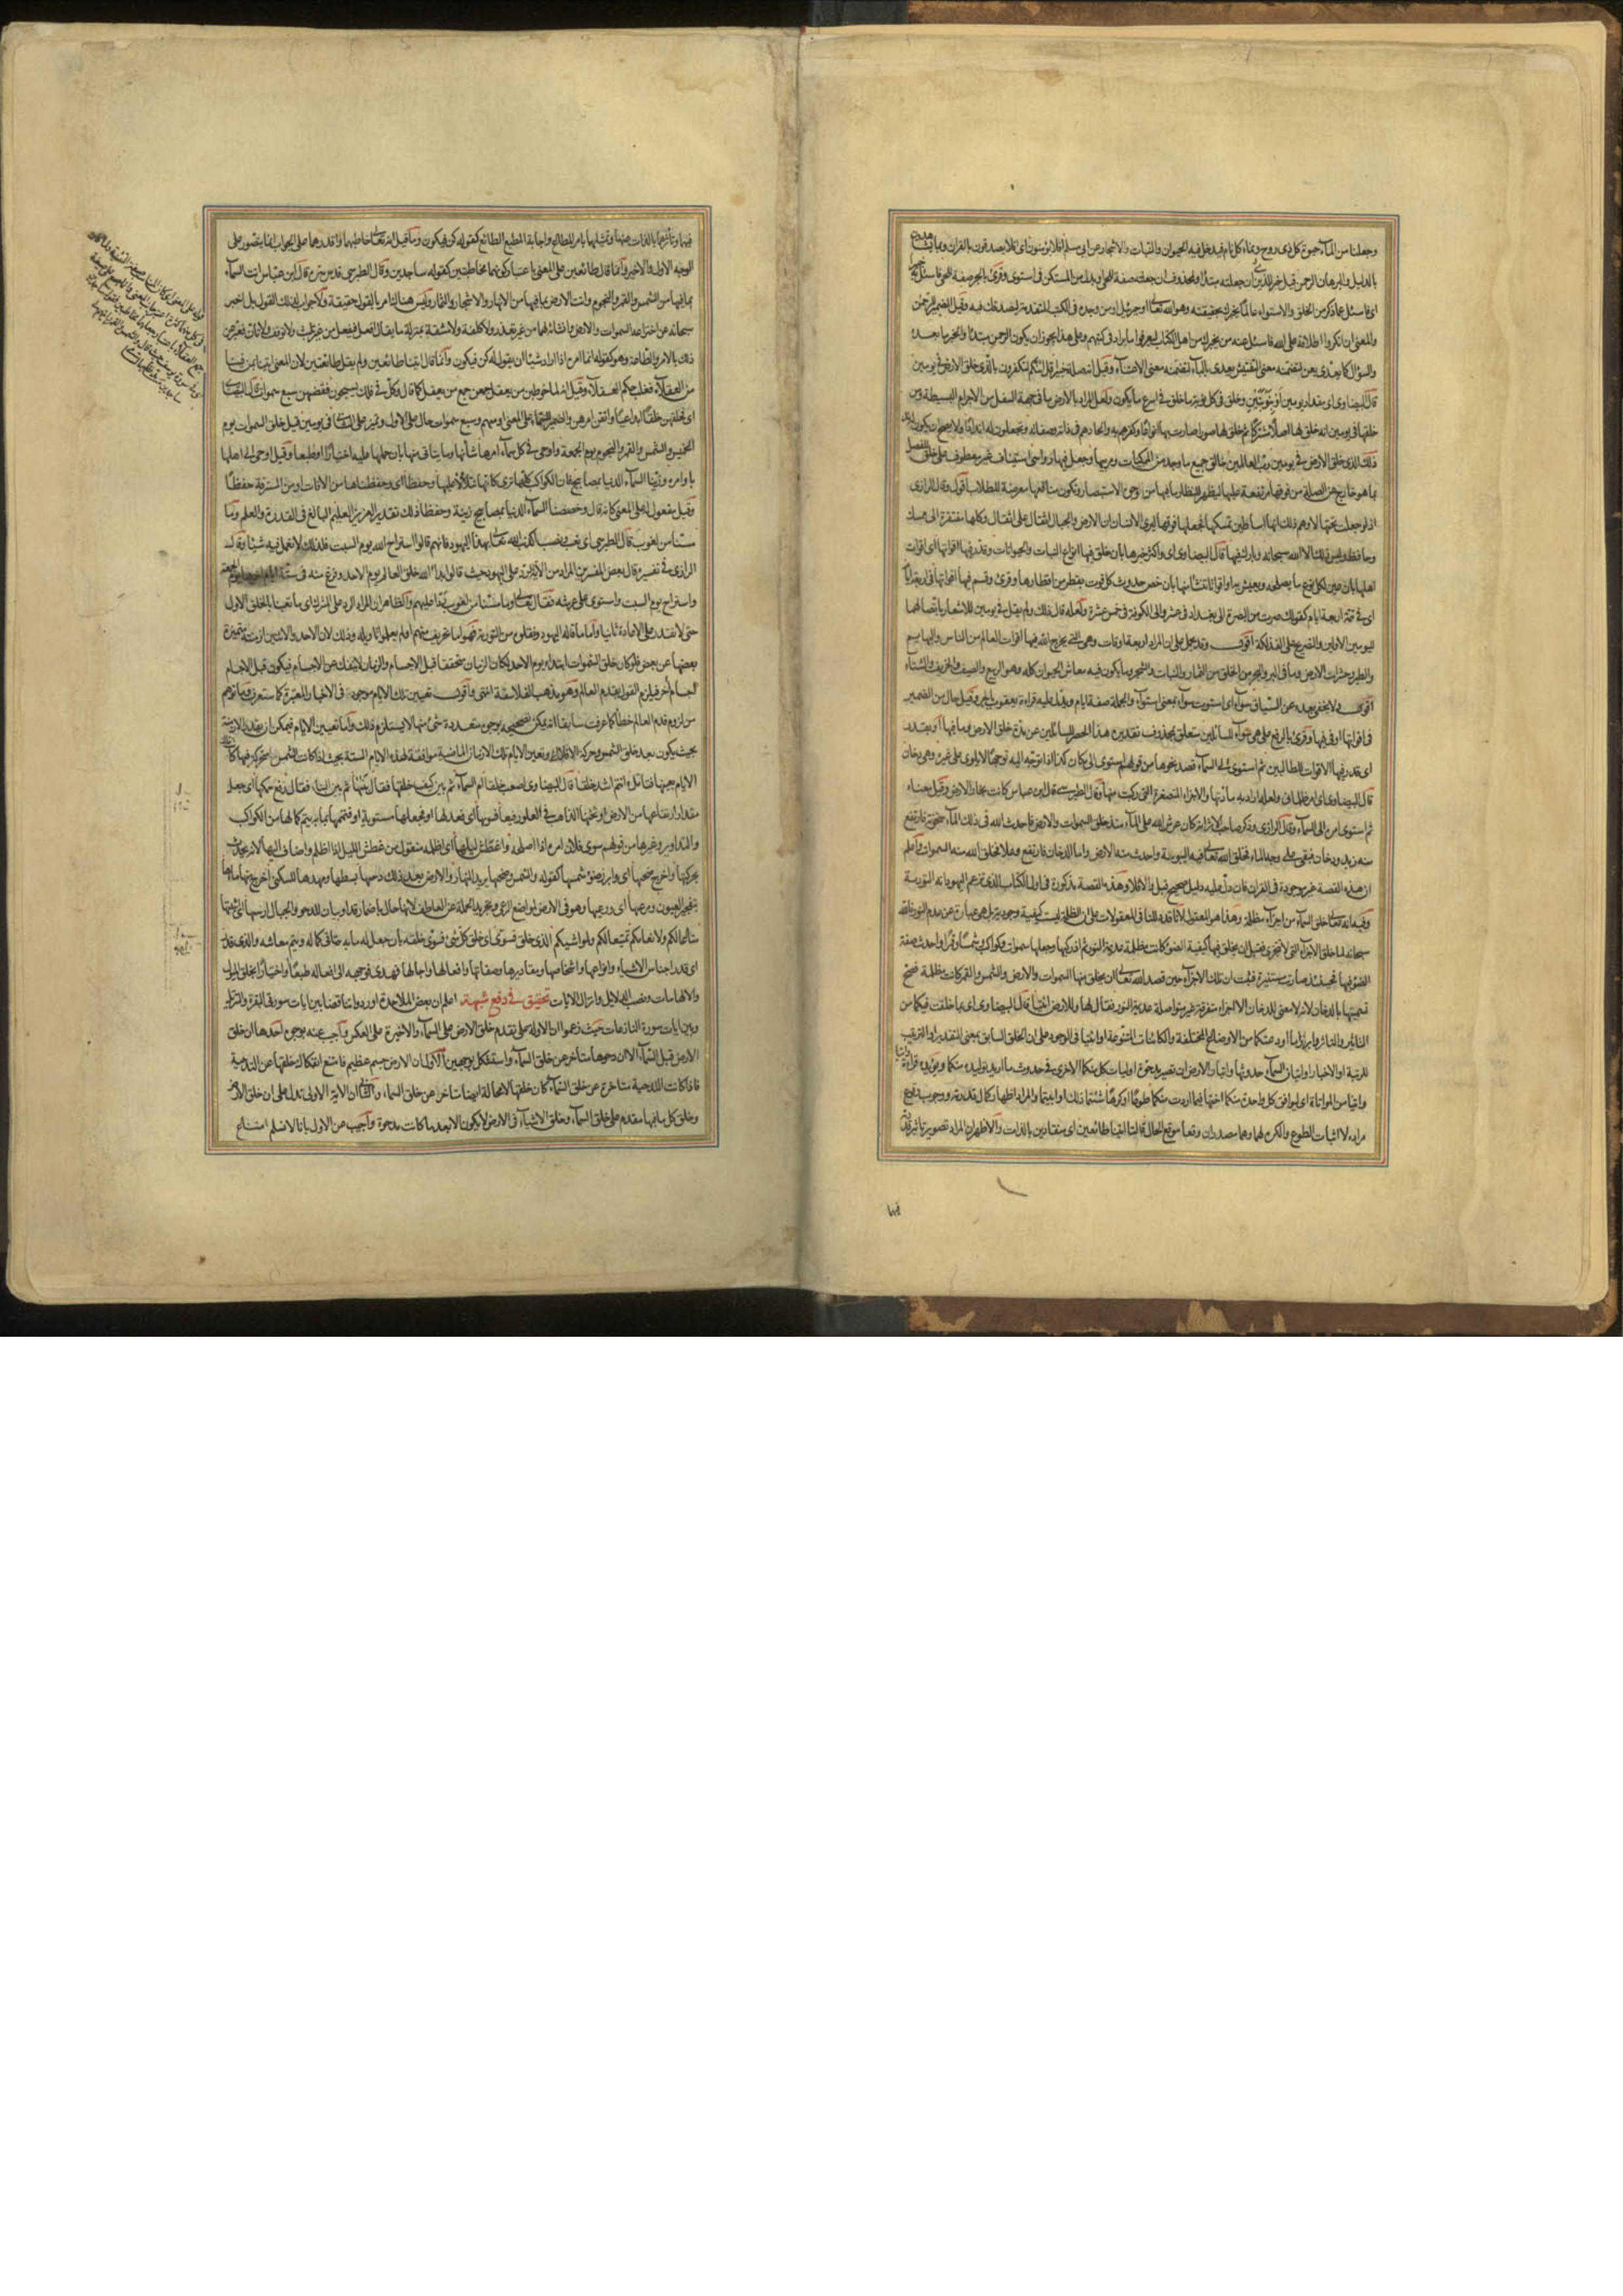 وجعلنا من الماء حيوة كل ذى روح ونماء كل نام فيدخل فيه الحيوان والنبات والاشجار عن ابى مسلم افلا يؤمنون اى افلا يصدقون بالقران وبما يشاهدون
بالدليل والبرهان الرحمن قيل خبر للذين ان جعلته مبتدأ ولمحذوف ان جعلته صفة للحى او بدل من المستكن فى استوى وقرئ بالجر صفة للحى فاسئل به خبيرا
اى فاسئل عما ذكر من الخلق والاستواء عالما يخبرك بحقيقته وهو الله تعالى او جبرئيل او من وجده فى الكتب المتقدمة ليصدقك فيه وقيل الضمير للرحمن
والمعنى ان انكروا اطلاقه على الله فاسئل عنه من يخبرك من اهل الكتاب ليعرفوا ما يرادفه فى كتبهم وعلى هذا يجوز ان يكون الرحمن مبتدأ والخبر ما بعده
والسؤال كما يعدى بعن لتضمنه معنى التفتيش يعدى بالباء لتضمنه معنى الاعتناء وقيل انه صلة خبيرا قل ائنكم لتكفرون بالذى خلق الارض فى يومين
قال البيضاوى اى مقدار يومين او بنوبتين وخلق فى كل نوبة ما خلق فى اسرع ما يكون ولعل المراد بالارض ما فى جهة السفل من الاجرام البسيطة ومن
خلقها فى يومين انه خلق لها اصلا مشتركا ثم خلق لها صورا صارت بها انواعا وكفرهم به الحادهم فى ذاته وصفاته وتجعلون له اندادا ولا يصح ان يكون له ند
ذلك الذى خلق الارض فى يومين رب العالمين خالق جميع ما وجد من الممكنات ومربيها وجعل فيها رواسى استيناف غير معطوف على خلق للفصل
بما هو خارج عن الصلة من فوقها مرتفعة عليها ليظهر للنظار ما فيها من وجوه الاستبصار وتكون منافعها معرضة للطلاب اقول وقال الرازى
اذ لو جعلت تحتها لاوهم ذلك انها اساطين تمسكها فجعلها فوقها ليرى الانسان ان الارض والجبال اثقال على اثقال وكلها مفتقرة الى ممسك
وحافظ وليس ذلك الا الله سبحانه وبارك فيها قال البيضاوى اى واكثر خيرها بان خلق فيها انواع النبات والحيوانات وقدر فيها اقواتها اى اقوات
اهلها بان عين لكل نوع ما يصلحه ويعيش به او اقواتا تنشأ منها بان خص حدوث كل قوت بقطر من اقطارها وقرئ وقسم فيها اقواتها فى اربعة ايام
اى فى تتمة اربعة ايام كقولك سرت من البصرة الى بغداد فى عشر والى الكوفة فى خمس عشرة ولعله قال ذلك ولم يقل فى يومين للاشعار باتصالهما
اليومين الاولين والتصريح على الفذلكة اقول وقد يحمل على ان المراد اربعة اوقات وهى التى يخرج الله فيها اقوات العالم من الناس والبهايم
والطير وحشرات الارض وما فى البر والبحر من الخلق من الثمار والنبات والشجر وما يكون فيه معاش الحيوان كله وهو الربيع والصيف والخريف والشتاء
اقول ولا يخفى بعده عن السياق سواء اى استوت سواء بمعنى استواء والجملة صفة ايام ويدل عليه قراءة يعقوب بالجر وقيل حال من الضمير
فى اقواتها او فيها وقرئ بالرفع على هى سواء للسائلين متعلق بمحذوف تقديره هذا الحصر للسائلين عن مدة خلق الارض وما فيها او بقدر
اى قدر فيها الاقوات للطالبين ثم استوى الى السماء قصد نحوها من قولهم استوى الى مكان كذا اذا توجه اليه توجها لا يلوى على غيره وهى دخان
قال البيضاوى اى امر ظلمانى ولعله اراد به مادتها والاجزاء المتصغرة التى ركبت منها وقال الطبرسى قال ابن عباس كانت بخار الارض وقيل معناه
ثم استوى امره الى السماء وقال الرازى وذكر صاحب الاثر انه كان عرش الله على الماء منذ خلق السموات والارض فاحدث الله فى ذلك الماء سخونة فارتفع
منه زبد ودخان فبقى على وجه الماء فخلق الله تعالى فيه اليبوسة واحدث منه الارض واما الدخان فارتفع وعلا فخلق الله منه السموات واعلم
ان هذه القصة غير موجودة فى القران فان دل عليه دليل صحيح قبل والا فلا وهذه القصة مذكورة فى اول الكتاب الذى تزعم اليهود انه التورية
وفيه انه تعالى خلق السماء من اجزاء مظلمة وهذا هو المعقول لانا قد دللنا فى المعقولات على ان الظلمة ليست كيفية وجودية بل هى عبارة عن عدم النور فالله
سبحانه لما خلق الاجزاء التى لا تتجزى فقبل ان يخلق فيها كيفية الضوء كانت مظلمة عديمة النور ثم اذ ركبها وجعلها سموات وكواكب وشمسا وقمرا واحدث صفة
الضوء فيها فحينئذ صارت مستنيرة فثبت ان تلك الاجزاء حين قصد الله تعالى ان يخلق منها السموات والارض والشمس والقمر كانت مظلمة فصح
تسميتها بالدخان لانه لا معنى للدخان الا اجزاء متفرقة غير متواصلة عديمة النور فقال لها وللارض ائتيا قال البيضاوى اى بما خلقت فيكما من
التاثير والتاثر وابرزا ما اودعتكما من الاوضاع المختلفة والكائنات المتنوعة او ائتيا فى الوجود على ان الخلق السابق بمعنى التقدير او الترتيب
للرتبة او الاخبار او اتيان السماء حدوثها واتيان الارض ان تصير مدحوة او ليات كل منكما الاخرى فى حدوث ما اريد توليده منكما ويؤيده قراءة اتيا
واتينا من المواتاة اى ليوافق كل واحدة منكما اختها فيما اردت منكما طوعا او كرها شئتما ذلك او ابيتما والمراد اظهار كمال قدرته ووجوب وقوع
مراده لا اثبات الطوع والكره لهما وهما مصدران وقعا موقع الحال قالتا اتينا طائعين اى منقادين بالذات والاظهر ان المراد تصوير تاثير قدرته
فيها
فيهما وتاثرهما بالذات عنها وتمثيلهما بامر المطاع واجابة المطيع الطائع كقوله كن فيكون وما قيل انه تعالى خاطبهما واقدرهما على الجواب انما يتصور على
الوجه الاول والاخير وانما قال طائعين على المعنى باعتبار كونهما مخاطبتين كقوله ساجدين وقال الطبرسى قدس سره قال ابن عباس اتت السماء
بما فيها من الشمس والقمر والنجوم واتت الارض بما فيها من الانهار والاشجار والثمار وليس هناك امر بالقول حقيقة ولا جواب لذلك القول بل اخبر
سبحانه عن اختراعه السموات والارض وانشائه لهما من غير تعذر ولا كلفة ولا مشقة بمنزلة ما يقال افعل فيفعل من غير تلبث ولا توقف ولا تأن فعبر عن
ذلك بالامر والطاعة وهو كقوله انما امره اذا اراد شيئا ان يقول له كن فيكون وانما قال اتينا طائعين ولم يقل طائعتين لان المعنى اتينا بمن فينا
من العقلاء فغلب حكم العقلاء وقيل انه لما خوطبن من يعقل جمعن جمع من يعقل كما قال وكل فى فلك يسبحون فقضيهن سبع سموات قال البيضاوى
اى فخلقهن خلقا ابداعيا واتقن امرهن والضمير للسماء على المعنى او مبهم وسبع سموات حال على الاول وتميز على الثانى فى يومين قيل خلق السموات يوم
الخميس والشمس والقمر والنجوم يوم الجمعة واوحى فى كل سماء امرها شأنها وما يتأتى منها بان حملها عليه اختيارا او طبعا وقيل اوحى الى اهلها
باوامره وزينا السماء الدنيا بمصابيح فان الكواكب كلها ترى كانها تتلألأ عليها وحفظا اى وحفظناها من الافات او من المسترقة حفظا
وقيل مفعول له على المعنى كانه قال وخصصنا السماء الدنيا بمصابيح زينة وحفظا ذلك تقدير العزيز العليم البالغ فى القدرة والعلم وما
مسنا من لغوب قال الطبرسى اى تعب ونصب اكذب الله تعالى بهذا اليهود فانهم قالوا استراح الله يوم السبت فلذلك لا نعمل فيه شيئا وقال
الرازى فى تفسيره قال بعض المفسرين المراد من الاية الرد على اليهود حيث قالوا بدأ الله خلق العالم يوم الاحد وفرغ منه فى ستة ايام اخرها يوم الجمعة
واستراح يوم السبت واستوى على عرشه فقال تعالى وما مسنا من لغوب ردا عليهم والظاهر ان المراد الرد على المشرك اى ما تعبنا بالخلق الاول
حتى لا نقدر على الاعادة ثانيا واما ما قاله اليهود ونقلوه من التورية فهو اما تحريف منهم او لم يعلموا تاويله وذلك لان الاحد والاثنين ازمنة متميزة
بعضها عن بعض فلو كان خلق السموات ابتدئ يوم الاحد لكان الزمان متحققا قبل الاجسام والزمان لا ينفك عن الاجسام فيكون قبل الاجسام
اجسام اخر فيلزم القول بقدم العالم وهو مذهب الفلاسفة انتهى واقول تعيين تلك الايام موجود فى الاخبار المعتبرة كما ستعرف وما توهم
من لزوم قدم العالم خطأ كما عرفت سابقا انه يمكن تصحيحه بوجوه متعددة شئ منها لا يستلزم ذلك واما تعيين الايام فيمكن ان يقدر الازمنة
بحيث يكون بعد خلق الشمس وحركة الافلاك وتعين الايام تلك الازمان الماضية موافقة لهذه الايام الستة بحيث اذا كانت الشمس متحركة فيها كانت تلك
الايام بعينها فتامل ءانتم اشد خلقا قال البيضاوى اصعب خلقا ام السماء ثم بين كيف خلقها فقال بنيها ثم بين البناء فقال رفع سمكها اى جعل
مقدار ارتفاعها من الارض او ثخنها الذاهب فى العلو رفيعا فسويها اى فعدلها او فجعلها مستوية او فتممها بما به يتم كمالها من الكواكب
والتداوير وغيرها من قولهم سوى فلان امره اذا اصلحه واغطش ليلها اى اظلمه منقول من غطش الليل اذا اظلم واضافه اليها لانه يحدث
بحركتها واخرج ضحيها اى وابرز ضوء شمسها كقوله والشمس وضحيها يريد النهار والارض بعد ذلك دحيها بسطها ومهدها للسكنى اخرج منها ماءها
بتفجير العيون ومرعيها اى ورعيها وهو فى الاصل لموضع الرعى وتجريد الجملة عن العاطف لانها حال باضمار قد او بيان للدحو والجبال ارسيها اى اثبتها
متاعا لكم ولانعامكم تمتيعا لكم ولمواشيكم الذى خلق فسوى اى خلق كل شئ فسوى خلقته بان جعل له ما به يتأتى كماله ويتم معاشه والذى قدر
اى قدر اجناس الاشياء وانواعها واشخاصها ومقاديرها وصفاتها وافعالها واجالها فهدى فوجهه الى افعاله طبعا واختيارا بخلق الميول
والالهامات ونصب الدلايل وانزال الايات تحقيق فى دفع شبهة اعلم ان بعض الملاحدة اوردوا تناقضا بين ايات سورتى البقرة والتنزيل
وبين ايات سورة النازعات حيث زعموا ان الاولة على تقدم خلق الارض على السماء والاخيرة على العكس واجيب عنه بوجوه احدها ان خلق
الارض قبل السماء الا ان دحوها متاخر عن خلق السماء واستشكل بوجهين الاول ان الارض جسم عظيم فامتنع انفكاك خلقها عن التدحية
فاذا كانت التدحية متاخرة عن خلق السماء كان خلقها لا محالة ايضا متاخرا عن خلق السماء والثانى ان الاية الاولى تدل على ان خلق الارض
وخلق كل ما فيها مقدم على خلق السماء وخلق الاشياء فى الارض لا يكون الا بعد ما كانت مدحوة واجيب عن الاول بانا لا نسلم امتناع